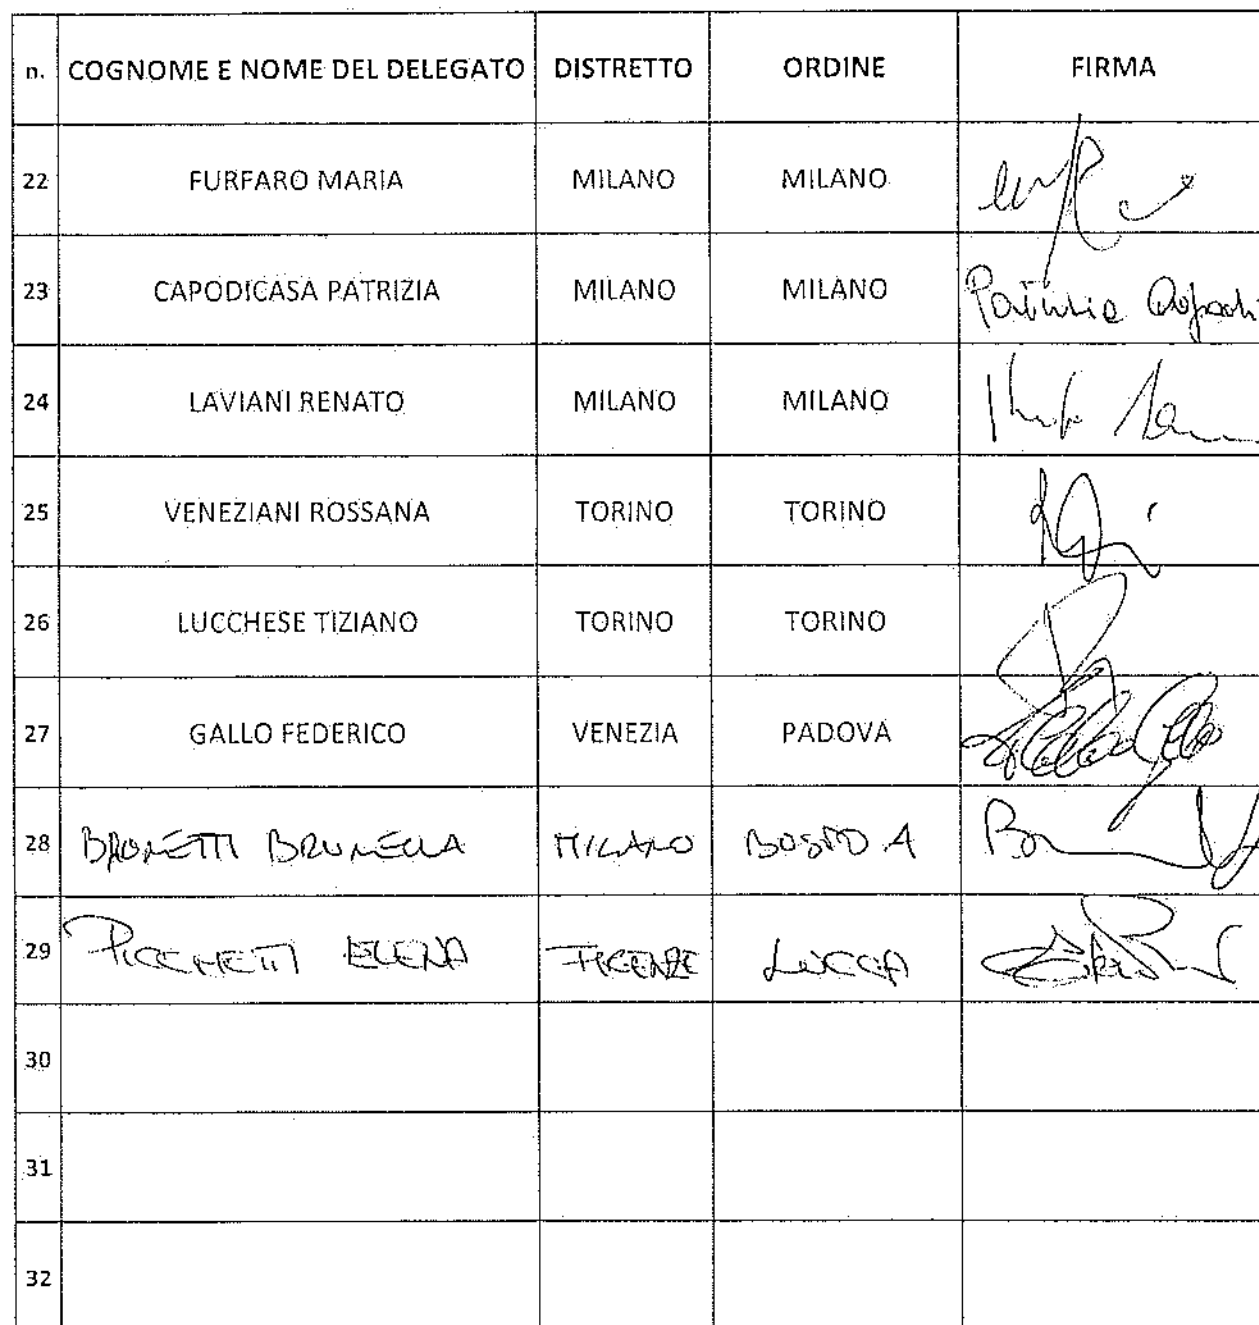 n. COGNOME E NOME DEL DELEGATO DISTRETTO ORDINE FIRMA
22 FURFARO MARIA MILANO MILANO
23 CAPODICASA PATRIZIA MILANO MILANO Patrizia
24 LAVIANI RENATO MILANO MILANO
25 VENEZIANI ROSSANA TORINO TORINO
26 LUCCHESE TIZIANO TORINO TORINO
27 GALLO FEDERICO VENEZIA PADOVA
28 BRUNELLA MILANO BUSTO A
29 PICCHETTI ELENA FIRENZE LUCCA
30
31
32